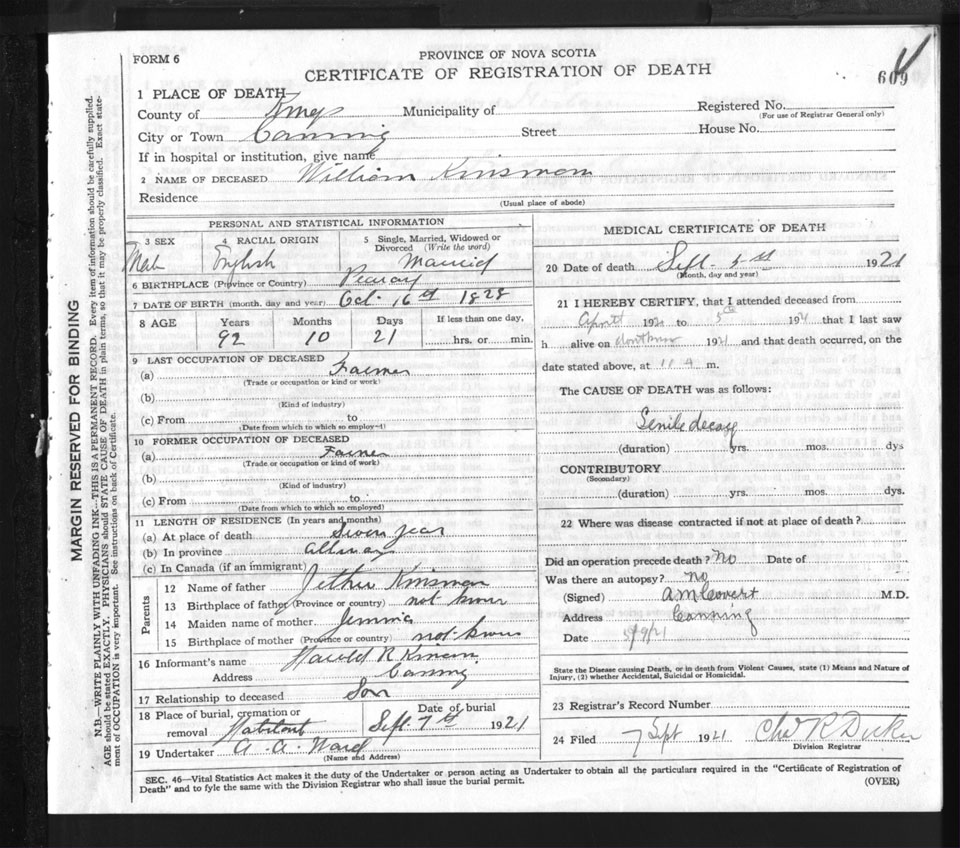 FORM 6
PROVINCE OF NOVA SCOTIA
CERTIFICATE OF REGISTRATION OF DEATH
609
1 PLACE OF DEATH
County of Kings Municipality of Registered No.
(For use of Registrar General only)
City or Town Canning Street House No.
If in hospital or institution, give name
2 NAME OF DECEASED William Kinsman
Residence
(Usual place of abode)
PERSONAL AND STATISTICAL INFORMATION
3 SEX 4 RACIAL ORIGIN 5 Single, Married, Widowed or Divorced (Write the word)
Male English Married
6 BIRTHPLACE (Province or Country)
7 DATE OF BIRTH (month, day and year) Oct. 16th 1828
8 AGE Years Months Days If less than one day,
92 10 21 hrs. or min.
9 LAST OCCUPATION OF DECEASED
(a) Farmer
(Trade or occupation or kind of work)
(b)
(Kind of industry)
(c) From to
(Date from which to which so employed)
10 FORMER OCCUPATION OF DECEASED
(a) Farmer
(Trade or occupation or kind of work)
(b)
(Kind of industry)
(c) From to
(Date from which to which so employed)
11 LENGTH OF RESIDENCE (In years and months)
(a) At place of death Seven year
(b) In province allways
(c) In Canada (if an immigrant)
Parents
12 Name of father Jether Kinsman
13 Birthplace of father (Province or country) not know
14 Maiden name of mother Jemima
15 Birthplace of mother (Province or country) not know
16 Informant's name Harold R Kinsman
Address Canning
17 Relationship to deceased Son
18 Place of burial, cremation or removal Habitant
Date of burial Sept. 7th 1921
19 Undertaker A. A. Ward
(Name and Address)
MEDICAL CERTIFICATE OF DEATH
20 Date of death Sept. 5th 1921
(Month, day and year)
21 I HEREBY CERTIFY, that I attended deceased from
April 192 to 5th 192 that I last saw
h alive on 1921 and that death occurred, on the
date stated above, at 11 A m.
The CAUSE OF DEATH was as follows:
Senile decay
(duration) yrs. mos. dys
CONTRIBUTORY
(Secondary)
(duration) yrs. mos. dys.
22 Where was disease contracted if not at place of death?
Did an operation precede death? No Date of
Was there an autopsy? no
(Signed) A M Covert M.D.
Address Canning
Date 5/9/21
State the Disease causing Death, or in death from Violent Causes, state (1) Means and Nature of
Injury, (2) whether Accidental, Suicidal or Homicidal.
23 Registrar's Record Number
24 Filed 7 Sept 1921 Chs R Dickey
Division Registrar
SEC. 46—Vital Statistics Act makes it the duty of the Undertaker or person acting as Undertaker to obtain all the particulars required in the "Certificate of Registration of
Death" and to fyle the same with the Division Registrar who shall issue the burial permit.
(OVER)
MARGIN RESERVED FOR BINDING
N.B.—WRITE PLAINLY WITH UNFADING INK—THIS IS A PERMANENT RECORD. Every item of information should be carefully supplied.
AGE should be stated EXACTLY. PHYSICIANS should STATE CAUSE OF DEATH in plain terms, so that it may be properly classified. Exact state-
ment of OCCUPATION is very important. See instructions on back of Certificate.